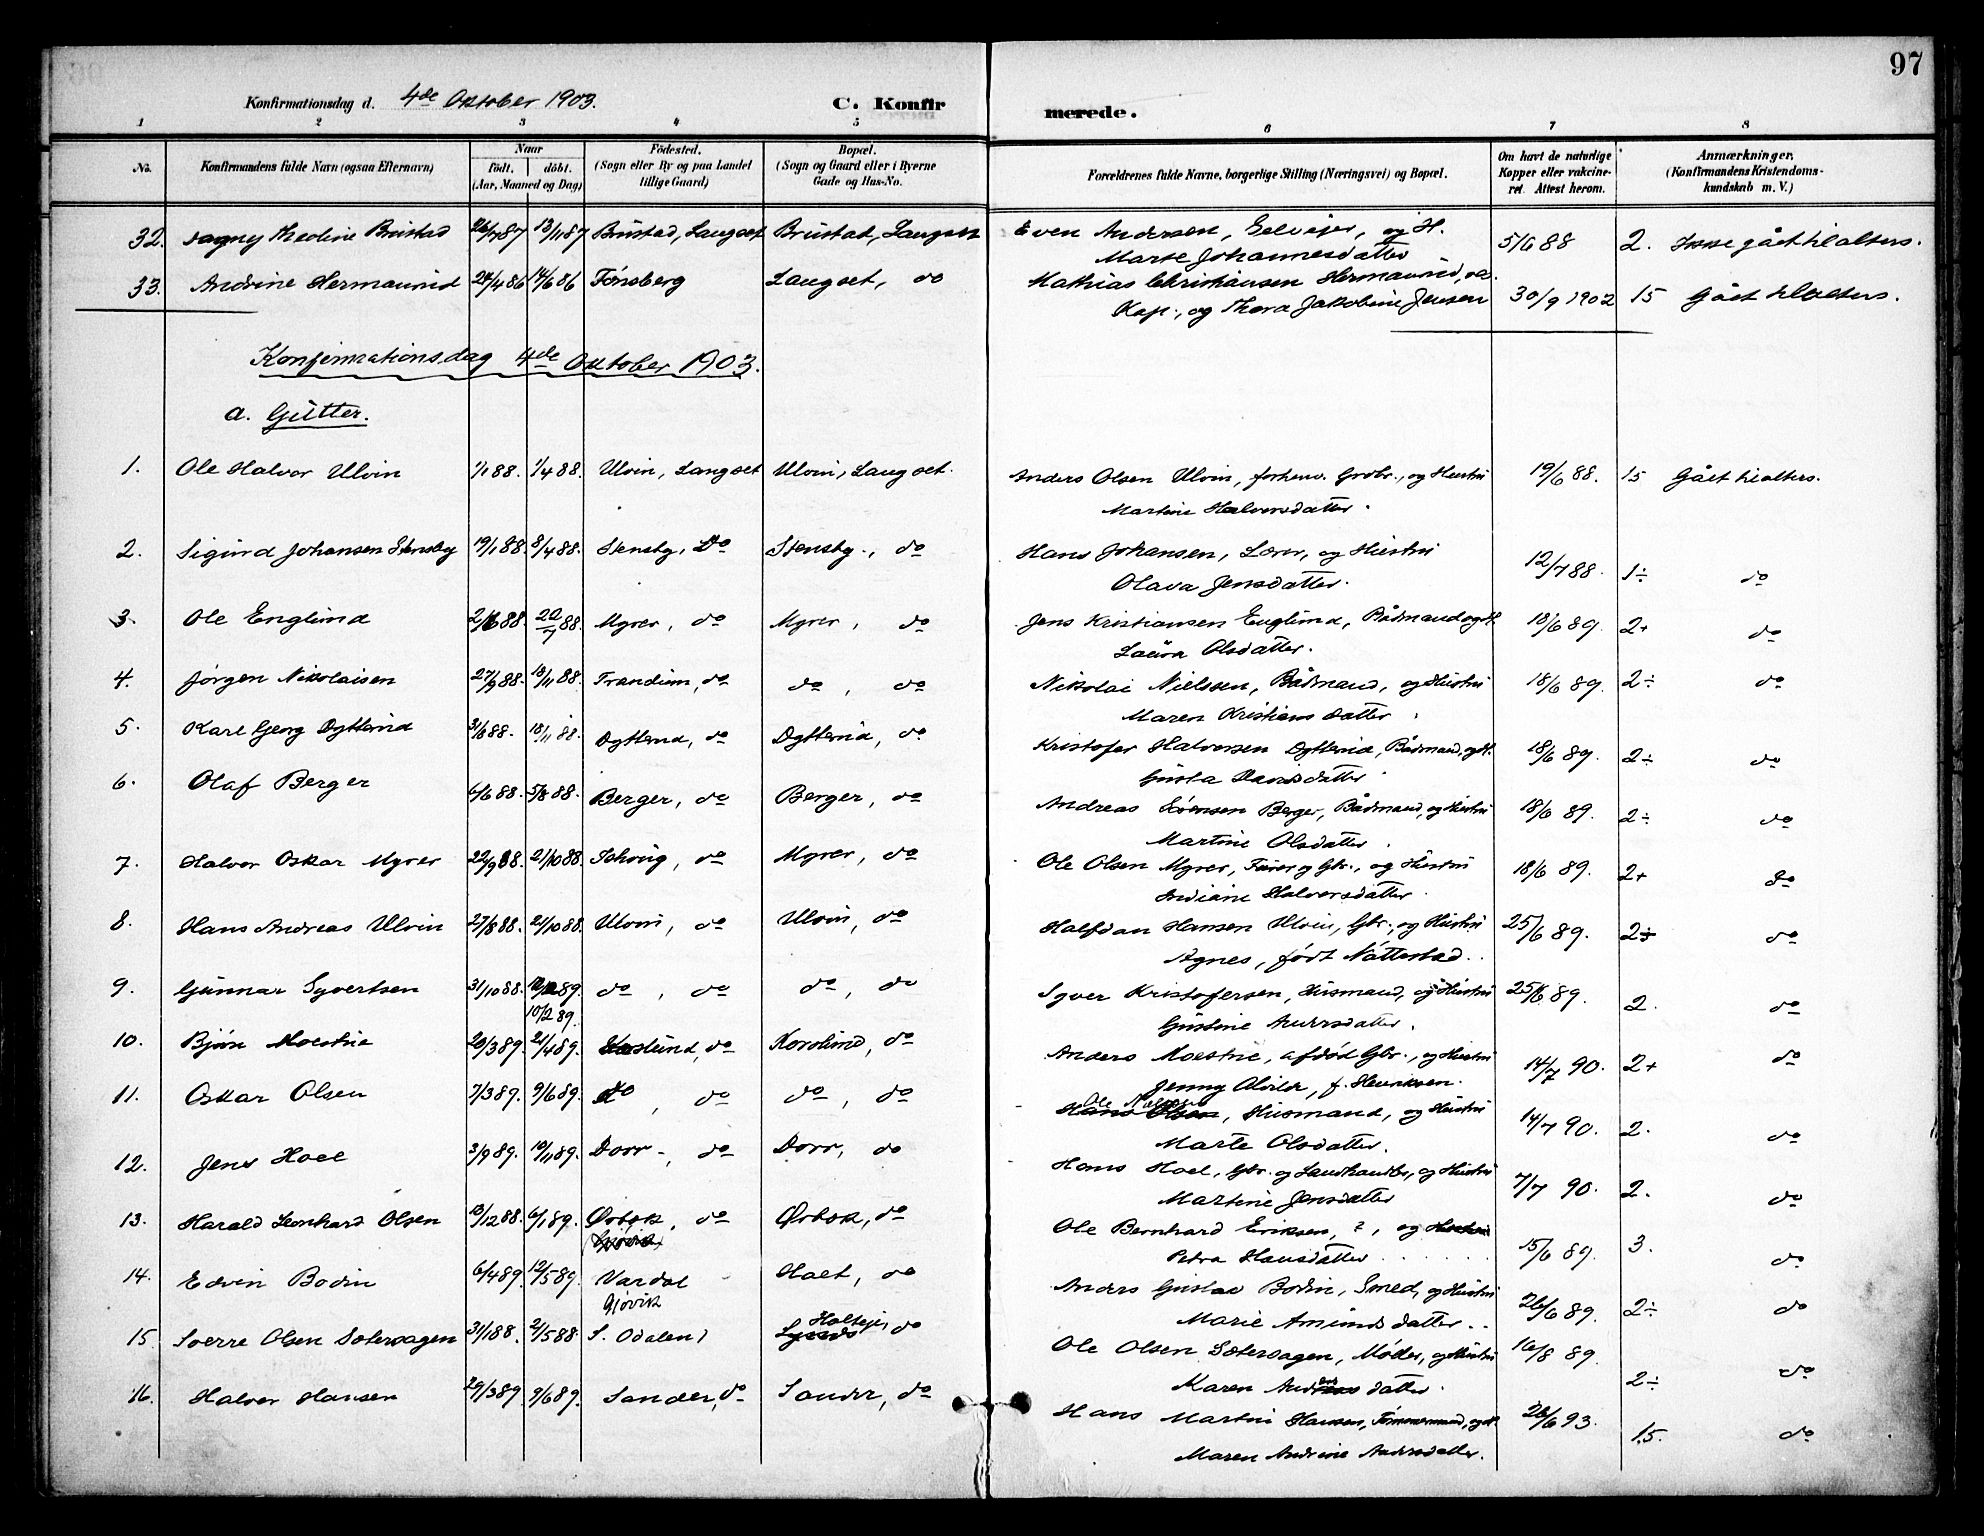 97
Konfirmationsdag d. 4de Oktober 1903. C. Konfir merede.
1 2 3 4 5 6 7 8
No. Konfirmandens fulde Navn (ogsaa Efternavn) Naar födt. döbt. (Aar, Maaned og Dag) Födested. (Sogn eller By og paa Landet tillige Gaard) Bopæl. (Sogn og Gaard eller i Byerne Gade og Hus-No. Forældrenes fulde Navne, borgerlige Stilling (Næringsvei) og Bopæl. Om havt de naturlige Kopper eller vakcineret. Attest herom. Anmærkninger. (Konfirmandens Kristendomskundskab m. V.)
32. Dagny Thedine Brustad 26/7 87 13/11 87 Brustad, Langset Brustad, Langset Even Andersen, Selveier, og H. 5/6 88 2. Ikke gået til alters.
Marte Johannesdatter
33. Andrine Hermanrud 24/4 86 14/6 86 Tönsberg Langset, do Mathias Christiansen Hermanrud,
Kap., og Thora Jakobine Jensen 30/9 1902 15 Gået til alters.
Konfirmationsdag 4de Oktober 1903.
a. Gutter.
1. Ole Halvor Ulvin 1/1 88. 1/4 88. Ulvin, Langset Ulvin, Langset. Anders Olsen Ulvin, forhenv. Grdbr., og Hustru 19/6 88. 15 Gået til alters.
Martine Halvorsdatter.
2. Sigurd Johansen Stensby 19/1 88. 8/4 88. Stensby, Do Stensby., do Hans Johansen, Lærer, og Hustru 12/7 88. 1÷ do
Olava Jensdatter.
3. Ole Englund 2/6 88. 22/7 88. Myrer, do Myrer, do Jens Kristiansen Englund, Bådmand og H. 18/6 89. 2+ do
Laura Olsdatter.
4. Jørgen Nikolaisen 27/9 88. 18/11 88. Trandum, do do, do Nikolai Nielssen, Bådmand, og Hustru 18/6 89. 2÷ do
Maren Kristiansdatter.
5. Karl Georg Dytterud 31/6 88. 18/11 88. Dytterud, do Dytterud, do Kristofer Halvorsen Dytterud, Bådmand, og H. 18/6 89. 2÷ do
Gusta Davidsdatter.
6. Olaf Berger 6/6 88. 5/8 88. Berger, do Berger, do Andreas Sörensen Berger, Bådmand, og Hustru 18/6 89. 2÷ do
Martine Olsdatter.
7. Halvor Oskar Myrer 22/9 88. 21/10 88. do Myrer, do Ole Olsen Myrer, Gbr., og Hustru 18/6 89. 2+ do
Indiane Halvorsdatter.
8. Hans Andreas Ulvin 27/8 88. 21/10 88. Ulvin, do Ulvin, do Halfdan Hansen Ulvin, Gbr., og Hustru 25/6 89. 2÷ do
Agnes, född Nåtterstad.
9. Gunnar Syvertsen 31/10 88. 10/2 89. do, do do, do Syver Kristofersen, Husmand, og Hustru 25/6 89. 2. do
Gustine Andersdatter.
10. Bjørn Moestue 20/3 89. 21/4 89. do Korslund, do Anders Moestue, afdöd Gbr., og Hustru 14/7 90. 2+ do
Jenny Alvilde, f. Henriksen.
11. Oskar Olsen 7/3 89. 9/6 89. do, do do, do Ole, Husmand, og Hustru 14/7 90. 2. do
Marte Olsdatter.
12. Jens Hoel 3/9 89. 10/11 89. Dorr, do Dorr, do Hans Hoel, Gbr. og Landhandler, og Hustru 7/7 90. 2. do
Martine Jensdatter
13. Harald Leonhard Olsen 13/12 88. 6/1 89. Ørbæk, do Ørbæk, do Ole Bernhard Eriksen, ?, og 15/6 89. 3. do
Petra Hansdatter
14. Edvin Bodin 6/4 89. 12/5 89. Vardal Gjövik do Anders Gustav Bodin, Smed, og Hustru 26/6 89. 2÷ do
Marie Amundsdatter.
15. Sverre Olsen Sætersagen 31/1 88. 21/5 88. S. Odalen do Ole Olsen Sætersagen, Møller, og Hustru 16/8 89. 2÷ do
Karen Andersdatter.
16. Halvor Hansen 29/3 89. 9/6 89. Sander, do Sander, do Hans Martin Hansen, Tömmermand, og H. 26/6 93. 1,5. do
Maren Andrine Andersdatter.